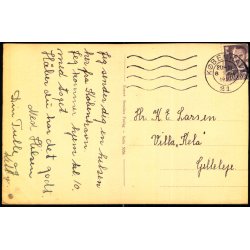 Jeg sender dig en hilsen
her fra København
Jeg kommer hjem kl 10
med toget
Håber du har det godt.
Med Hilsen
Din Tulle
KØBENHAVN
Hr. K. E. Larsen
Villa "Hela"
Gilleleje.